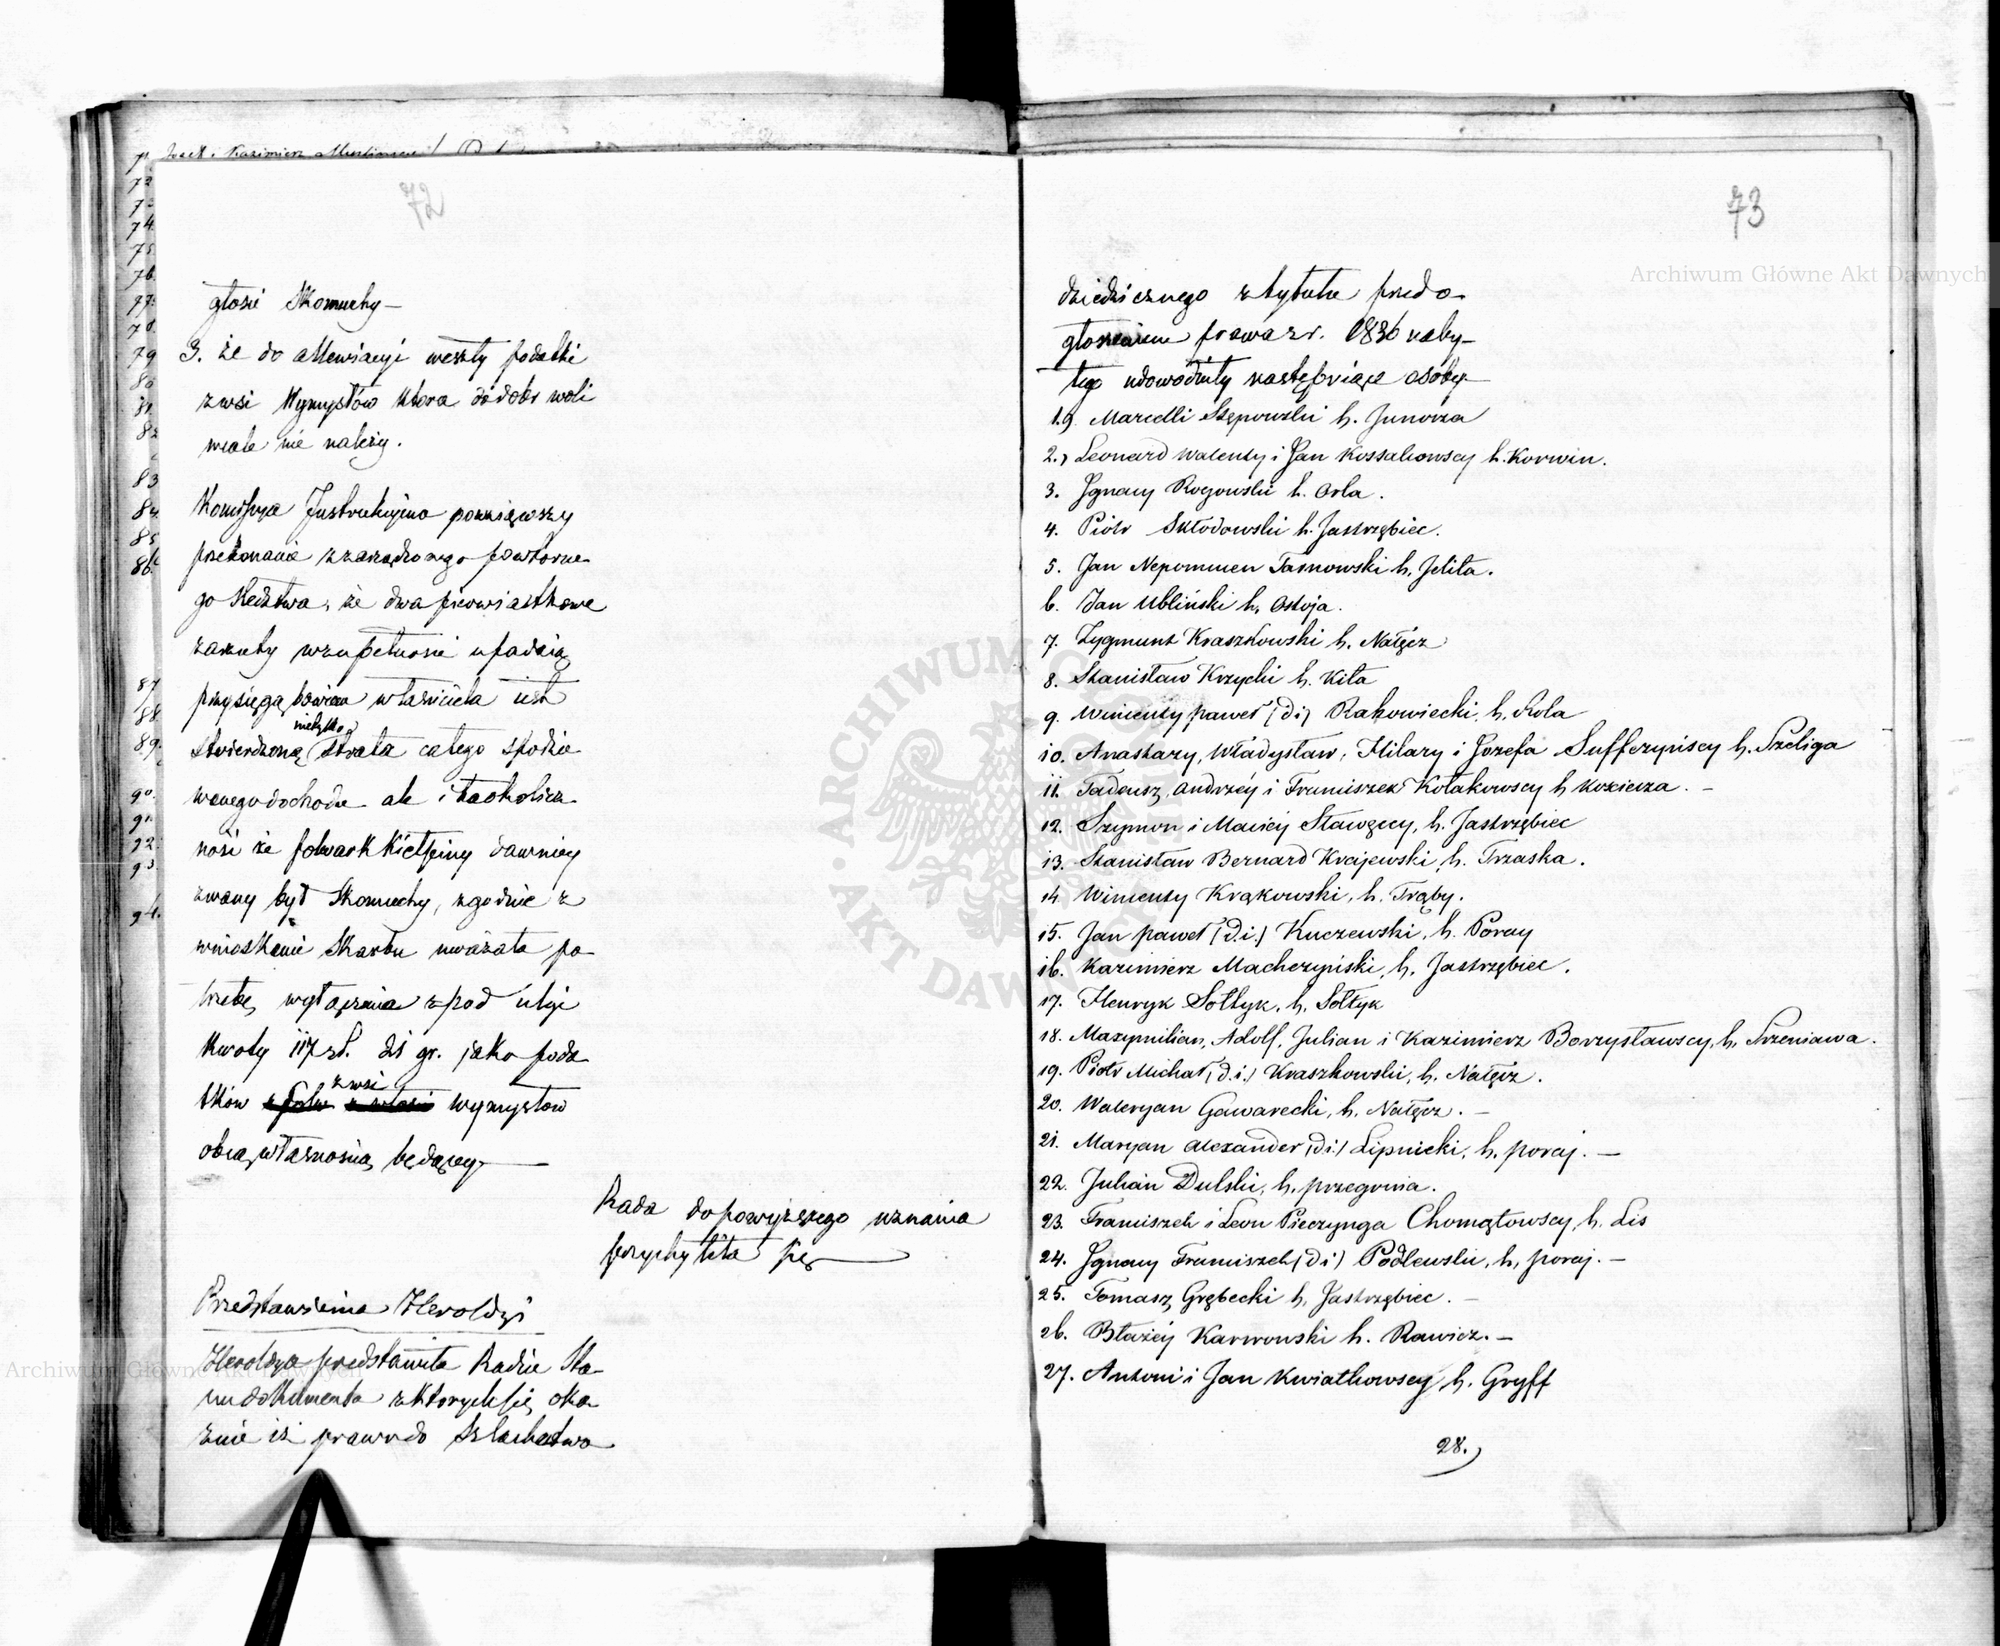 72
głosić Skomuchy —
3. że do allewiacyi weszły podatki
z wsi Wymysłów która do dóbr woli
wcale nie należy.
Kommissya Instrukcyjna powziąwszy
przekonanie z zarządzonego powtórne-
go śledztwa, że dwa pierwiastkowe
zarzuty wzupełności upadają
przysięgą bowiem właściciela jest
stwierdzoną nietylko strata całego spodzie
wanego dochodu ale i ta okolicz-
ność że folwark Kiełpiny dawniey
zwany był Skomuchy, zgodnie z
wnioskiem Skarbu uważała po-
trzebę wyłączenia z pod ulgi
Kwoty 117 zł. 21 gr. jako poda-
tków z wsi Wymysłow
obcą własnością będącey —
Rada do powyższego uznania
przychyliła się —
Przedstawienia Heroldyi
Heroldya przedstawiła Radzie Sta-
nu dokumenta z których się oka-
zuie iż prawo do Szlachectwa
73
dziedzicznego z tytułu przed o-
głoszeniem prawa z r. 1836 naby-
tego udowodniły następuiące osoby —
1.) Marcelli Stępowski h. Junosza
2.) Leonard Walenty i Jan Kossakowscy h. Korwin.
3. Ignacy Rogowski h. Orla.
4. Piotr Skłodowski h. Jastrzębiec.
5. Jan Nepomucen Tarnowski h. Jelita.
6. Jan Ubliński h. Ostoja.
7. Zygmunt Kraszkowski h. Nałęcz
8. Stanisław Krzycki h. Kita
9. Wincenty Paweł (d i) Rakowiecki, h. Rola
10. Anastazy, Władysław, Hilary i Józefa Suffczyńscy h. Szeliga
11. Tadeusz, Andrzéy i Franciszek Kołakowscy h Kościesza. —
12. Szymon i Maciéy Stawęccy, h. Jastrzębiec
13. Stanisław Bernard Krajewski, h. Trzaska.
14. Wincenty Krąkowski, h. Trąby.
15. Jan Paweł (d.i.) Kuczewski, h. Poray
16. Kazimierz Macherzyński, h. Jastrzębiec.
17. Henryk Sołtyk, h. Sołtyk
18. Maxymilian, Adolf, Julian i Kazimierz Borzysławscy, h. Szreniawa.
19. Piotr Michał, (d.i.) Kraszkowski, h. Nałęcz.
20. Waleryan Gawarecki, h. Nałęcz. —
21. Maryan Alexander (d i.) Lipnicki, h. Poraj. —
22. Julian Dulski, h. Przegonia.
23. Franciszek i Leon Pieczynga Chomętowscy, h. Lis
24. Ignacy Franciszek (d i) Podlewski, h. Poraj. —
25. Tomasz Grębecki h. Jastrzębiec. —
26. Błażéy Karwowski h. Rawicz. —
27. Antoni i Jan Kwiatkowscy h. Gryff
28.)
Archiwum Główne Akt Dawnych
Archiwum Główne Akt Dawnych
ARCHIWUM GŁÓWNE AKT DAWNYCH